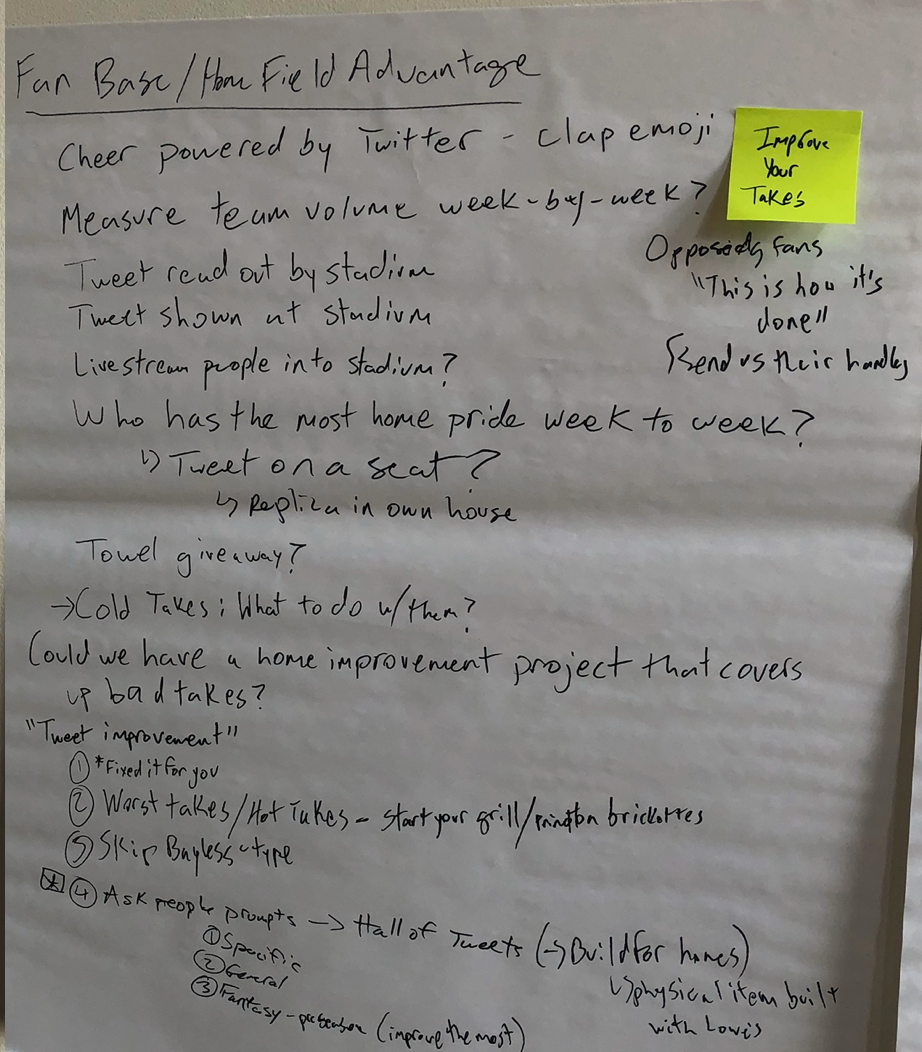 Fan Base/Home Field Advantage
Cheer powered by Twitter - clap emoji
Improve
Your
Takes
Measure team volume week-by-week?
Opposing fans
"This is how it's
done"
Send us their handles
Tweet read out by stadium
Tweet shown at stadium
Livestream people into stadium?
Who has the most home pride week to week?
↳ Tweet on a seat?
↳ Replica in own house
Towel giveaway?
→Cold Takes: What to do w/them?
Could we have a home improvement project that covers
up bad takes?
"Tweet improvement"
① *Fixed it for you
② Worst takes/Hot Takes - start your grill/ brickettes
③ Skip Bayless-type
④ Ask people prompts → Hall of Tweets (→ Build for homes)
↳ physical item built
with Lowe's
① Specific
② General
③ Fantasy - preseason (improve the most)